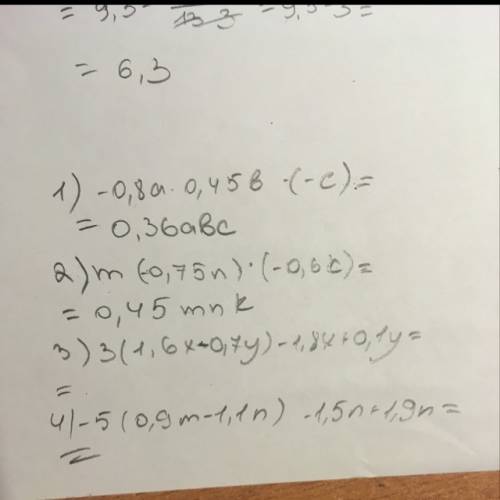 = 6,3
1) -0,8a · 0,45в · (-c) =
= 0,36авс
2) m (-0,75n) · (-0,6k) =
= 0,45 mnk
3) 3(1,6x-0,7y)-1,8x+0,1y=
=
4) -5(0,9m-1,1n) -1,5n+1,9n=
=